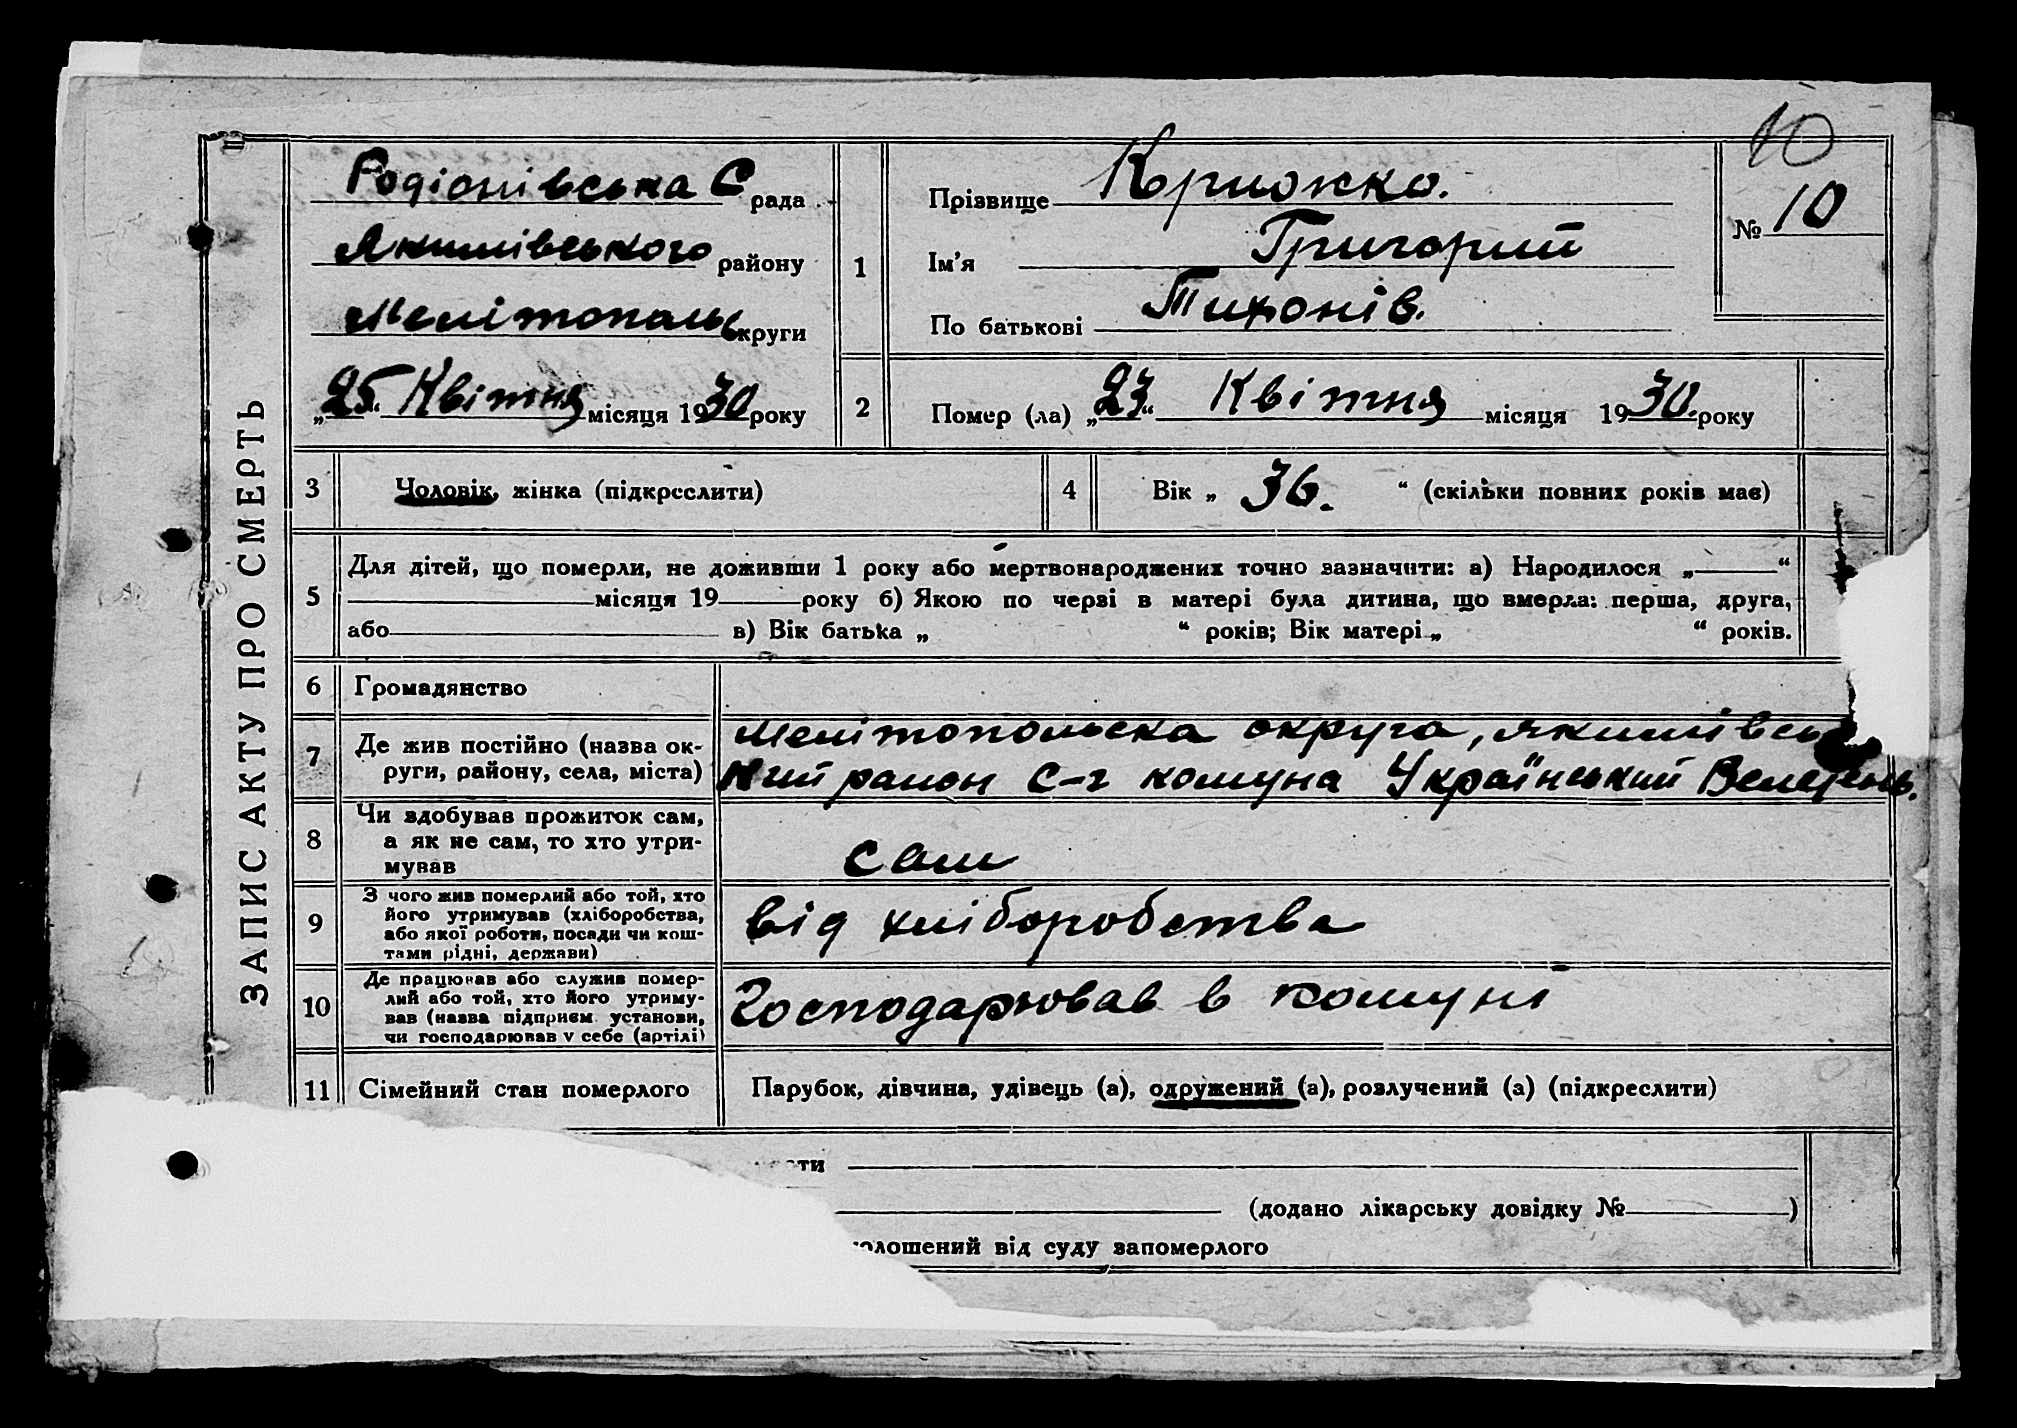 10
ЗАПИС АКТУ ПРО СМЕРТЬ
Родіонівська С рада
Якимівського району
Мелітопольс округи
„25“ Квітня місяця 1930 року
1
Прізвище Крижко.
Ім'я Григорий
По батькові Тихонів.
№ 10
2
Помер (ла) „23“ Квітня місяця 1930. року
3 Чоловік, жінка (підкреслити)
4 Вік „ 36. “ (скільки повних років має)
5
Для дітей, що померли, не доживши 1 року або мертвонароджених точно зазначити: а) Народилося „ “
місяця 19 року б) Якою по черзі в матері була дитина, що вмерла: перша, друга,
або в) Вік батька „ “ років; Вік матері „ “ років.
6 Громадянство
7 Де жив постійно (назва ок-
руги, району, села, міста)
Мелітопольска округа, якимівсь
кий район С-г комуна Український
8 Чи здобував прожиток сам,
а як не сам, то хто утри-
мував
сам
9 З чого жив померлий або той, хто
його утримував (хліборобства,
або якої роботи, посади чи кош-
тами рідні, держави)
від хліборобства
10 Де працював або служив помер-
лий або той, хто його утриму-
вав (назва підприєм. установи,
чи господарював у себе (артілі)
Господарював в комуні
11 Сімейний стан померлого
Парубок, дівчина, удівець (а), одружений (а), розлучений (а) (підкреслити)
ти
(додано лікарську довідку № )
олошений від суду запомерлого